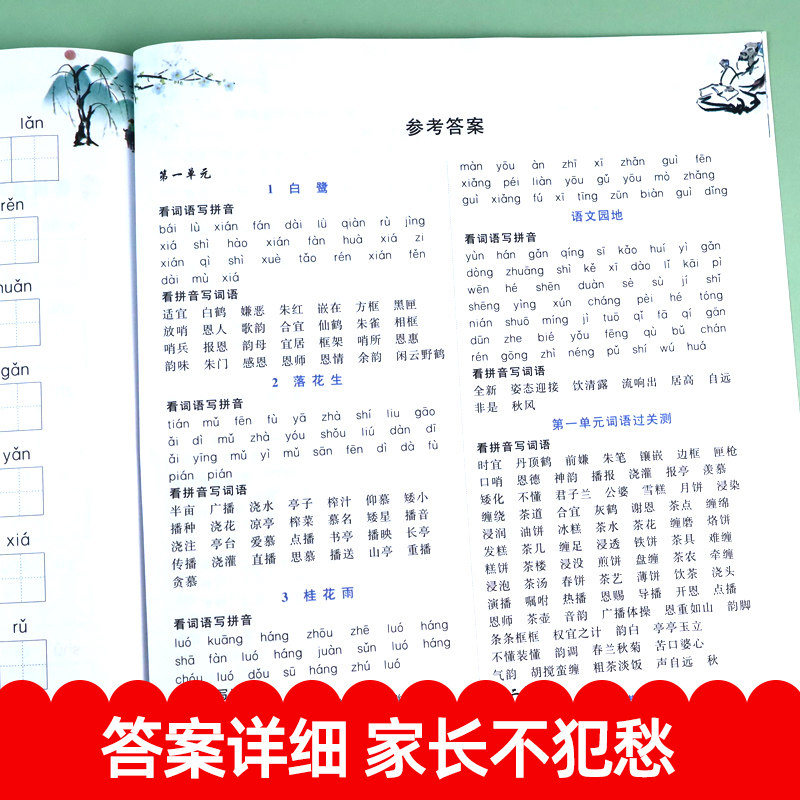 lǎn
rěn
huǎn
gǎn
yǎn
xiá
rǔ
参考答案
第一单元
1 白鹭
看词语写拼音
bái lù xián fán dài lǜ qiàn rù jìng
xiá shì hào xián fàn huà xiá zi
xián qì shì xuè tǎo rén xián fěn
dài mù xiá
看拼音写词语
适宜 白鹤 嫌恶 朱红 嵌在 方框 黑匣
放哨 恩人 歌韵 合宜 仙鹤 朱雀 相框
哨兵 报恩 韵母 宜居 框架 哨所 恩惠
韵味 朱门 感恩 恩师 恩情 余韵 闲云野鹤
2 落花生
看词语写拼音
tián mǔ fēn fù yā zhà shí liu gāo
ǎi dì mǔ zhà yóu shǒu liú dàn dī
ǎi yīng mǔ yì mǔ sān fēn dì dà fù
pián pián
看拼音写词语
半亩 广播 浇水 亭子 榨汁 仰慕 矮小
播种 浇花 凉亭 榨菜 慕名 矮星 播音
浇注 亭台 爱慕 点播 书亭 播映 长亭
传播 浇灌 直播 思慕 播送 山亭 重播
贪慕
3 桂花雨
看词语写拼音
luó kuāng háng zhōu zhē luó háng
shā fàn luó háng juàn sǔn luó háng
chóu luó dǒu sū háng zhú luó
màn yōu àn zhī xī zhǎn guì fēn
xiǎng péi liàn yōu gǔ yōu mò zhǎng
guì xiǎng fú xī tīng zūn biàn guì dǐng
语文园地
看词语写拼音
yùn hán gǎn qíng sī kǎo huí yì gǎn
dòng zhuāng shì kě xī dào lǐ kāi pì
wēn hé shēn duàn sè sù jí shī
shēng yìng xún cháng pèi hé tóng
nián shuō míng jì tuō qǐ fā qí gān
dūn zhe bié yǒu fēng qù bǔ chán
rén gōng zhì néng pǔ shí wú huá
看拼音写词语
全新 姿态迎接 饮清露 流响出 居高 自远
非是 秋风
第一单元词语过关测
看拼音写词语
时宜 丹顶鹤 前嫌 朱笔 镶嵌 边框 匣枪
口哨 恩德 神韵 播报 浇灌 报亭 羡慕
矮化 不懂 君子兰 公婆 雪糕 月饼 浸染
缠绕 茶道 合宜 灰鹤 谢恩 茶点 缠绵
浸润 油饼 冰糕 茶水 茶花 缠磨 烙饼
发糕 茶几 缠足 浸透 铁饼 茶具 难缠
糕饼 茶楼 浸没 煎饼 盘缠 茶农 牵缠
浸泡 茶汤 春饼 茶艺 薄饼 饮茶 浇头
演播 嘱咐 热播 恩赐 导播 开恩 点播
恩师 茶壶 音韵 广播体操 恩重如山 韵脚
条条框框 权宜之计 韵白 亭亭玉立
不懂装懂 韵调 春兰秋菊 苦口婆心
气韵 胡搅蛮缠 粗茶淡饭 声自远 秋
答案详细 家长不犯愁